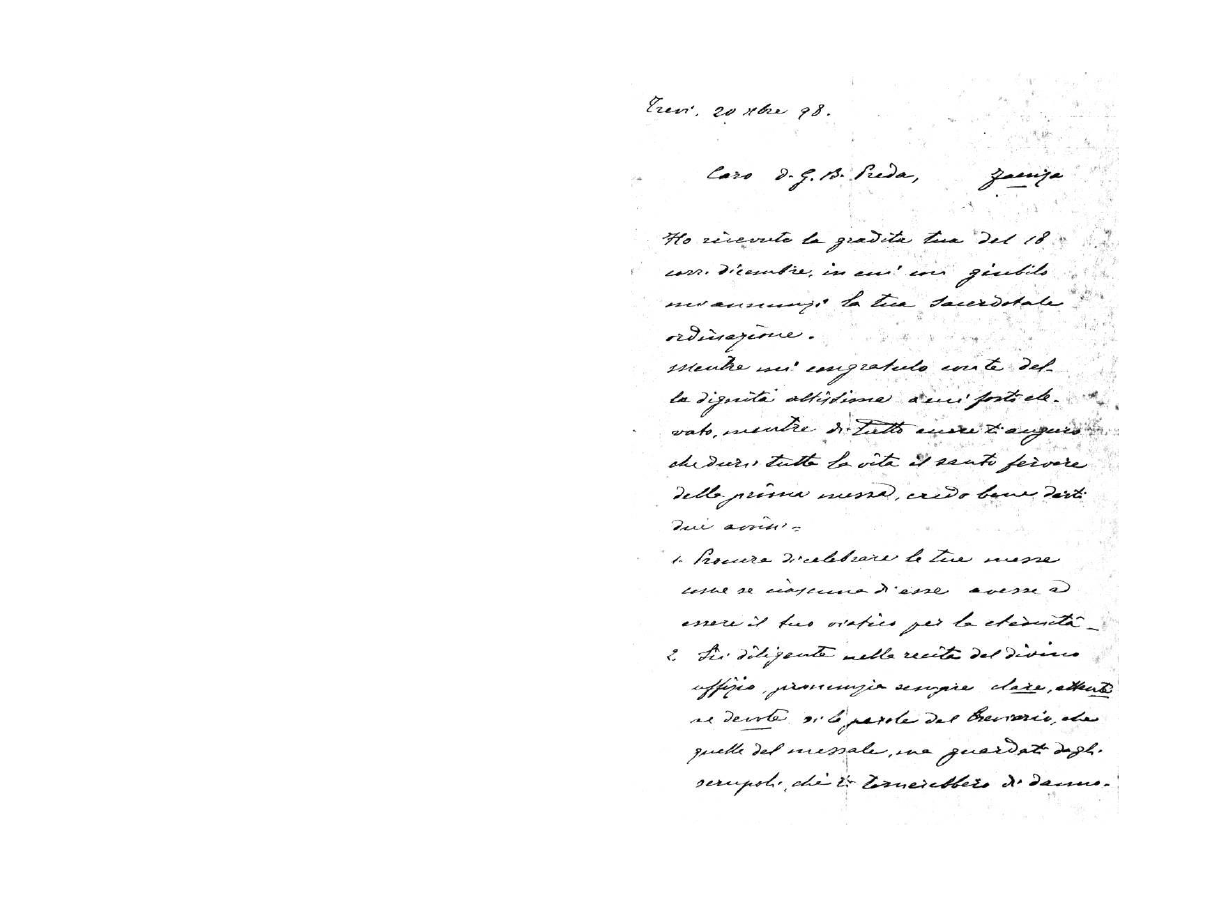 Trevi, 20 Xbre 98.
Caro D. G. B. Preda, Faenza
Ho ricevuto la gradita tua del 18
corr. dicembre, in cui con giubilo
mi annunzi la tua Sacerdotale
ordinazione.
Mentre mi congratulo con te del-
la dignità altissima a cui fosti ele-
vato, mentre di tutto cuore ti auguro
che duri tutta la vita il santo fervore
della prima messa, credo bene darti
due avvisi =
1. Procura di celebrare le tue messe
come se ciascuna di esse avesse ad
essere il tuo viatico per la eternità_
2. Sii diligente nella recita del divino
uffizio, pronunzia sempre clare, attente
ac devote sì le parole del Breviario, che
quelle del messale, ma guardati dagli
scrupoli, chè ti tornerebbero di danno.